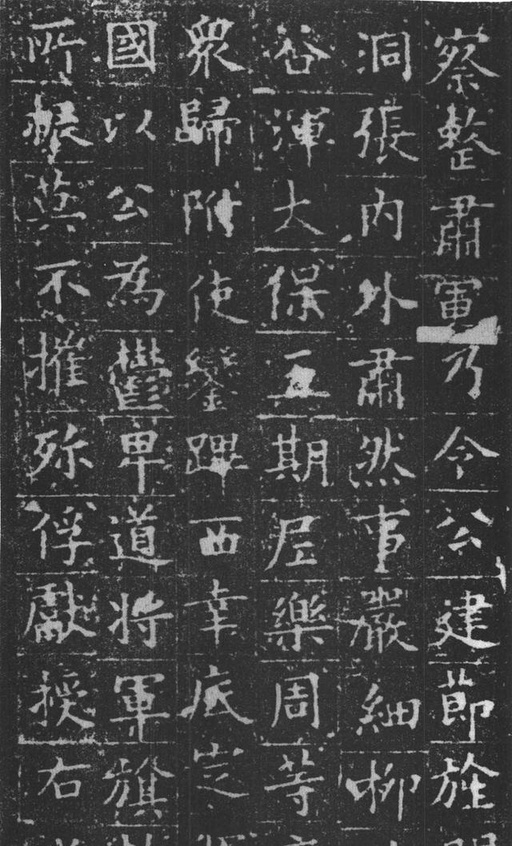 察整肅軍乃令公建節旌
洞張内外肅然事嚴細柳
谷渾大保五期尼樂周等
衆歸附使鑾蹕西幸底定
國以公為鬱卑道将軍旗
所報莫不摧殄俘獻授右